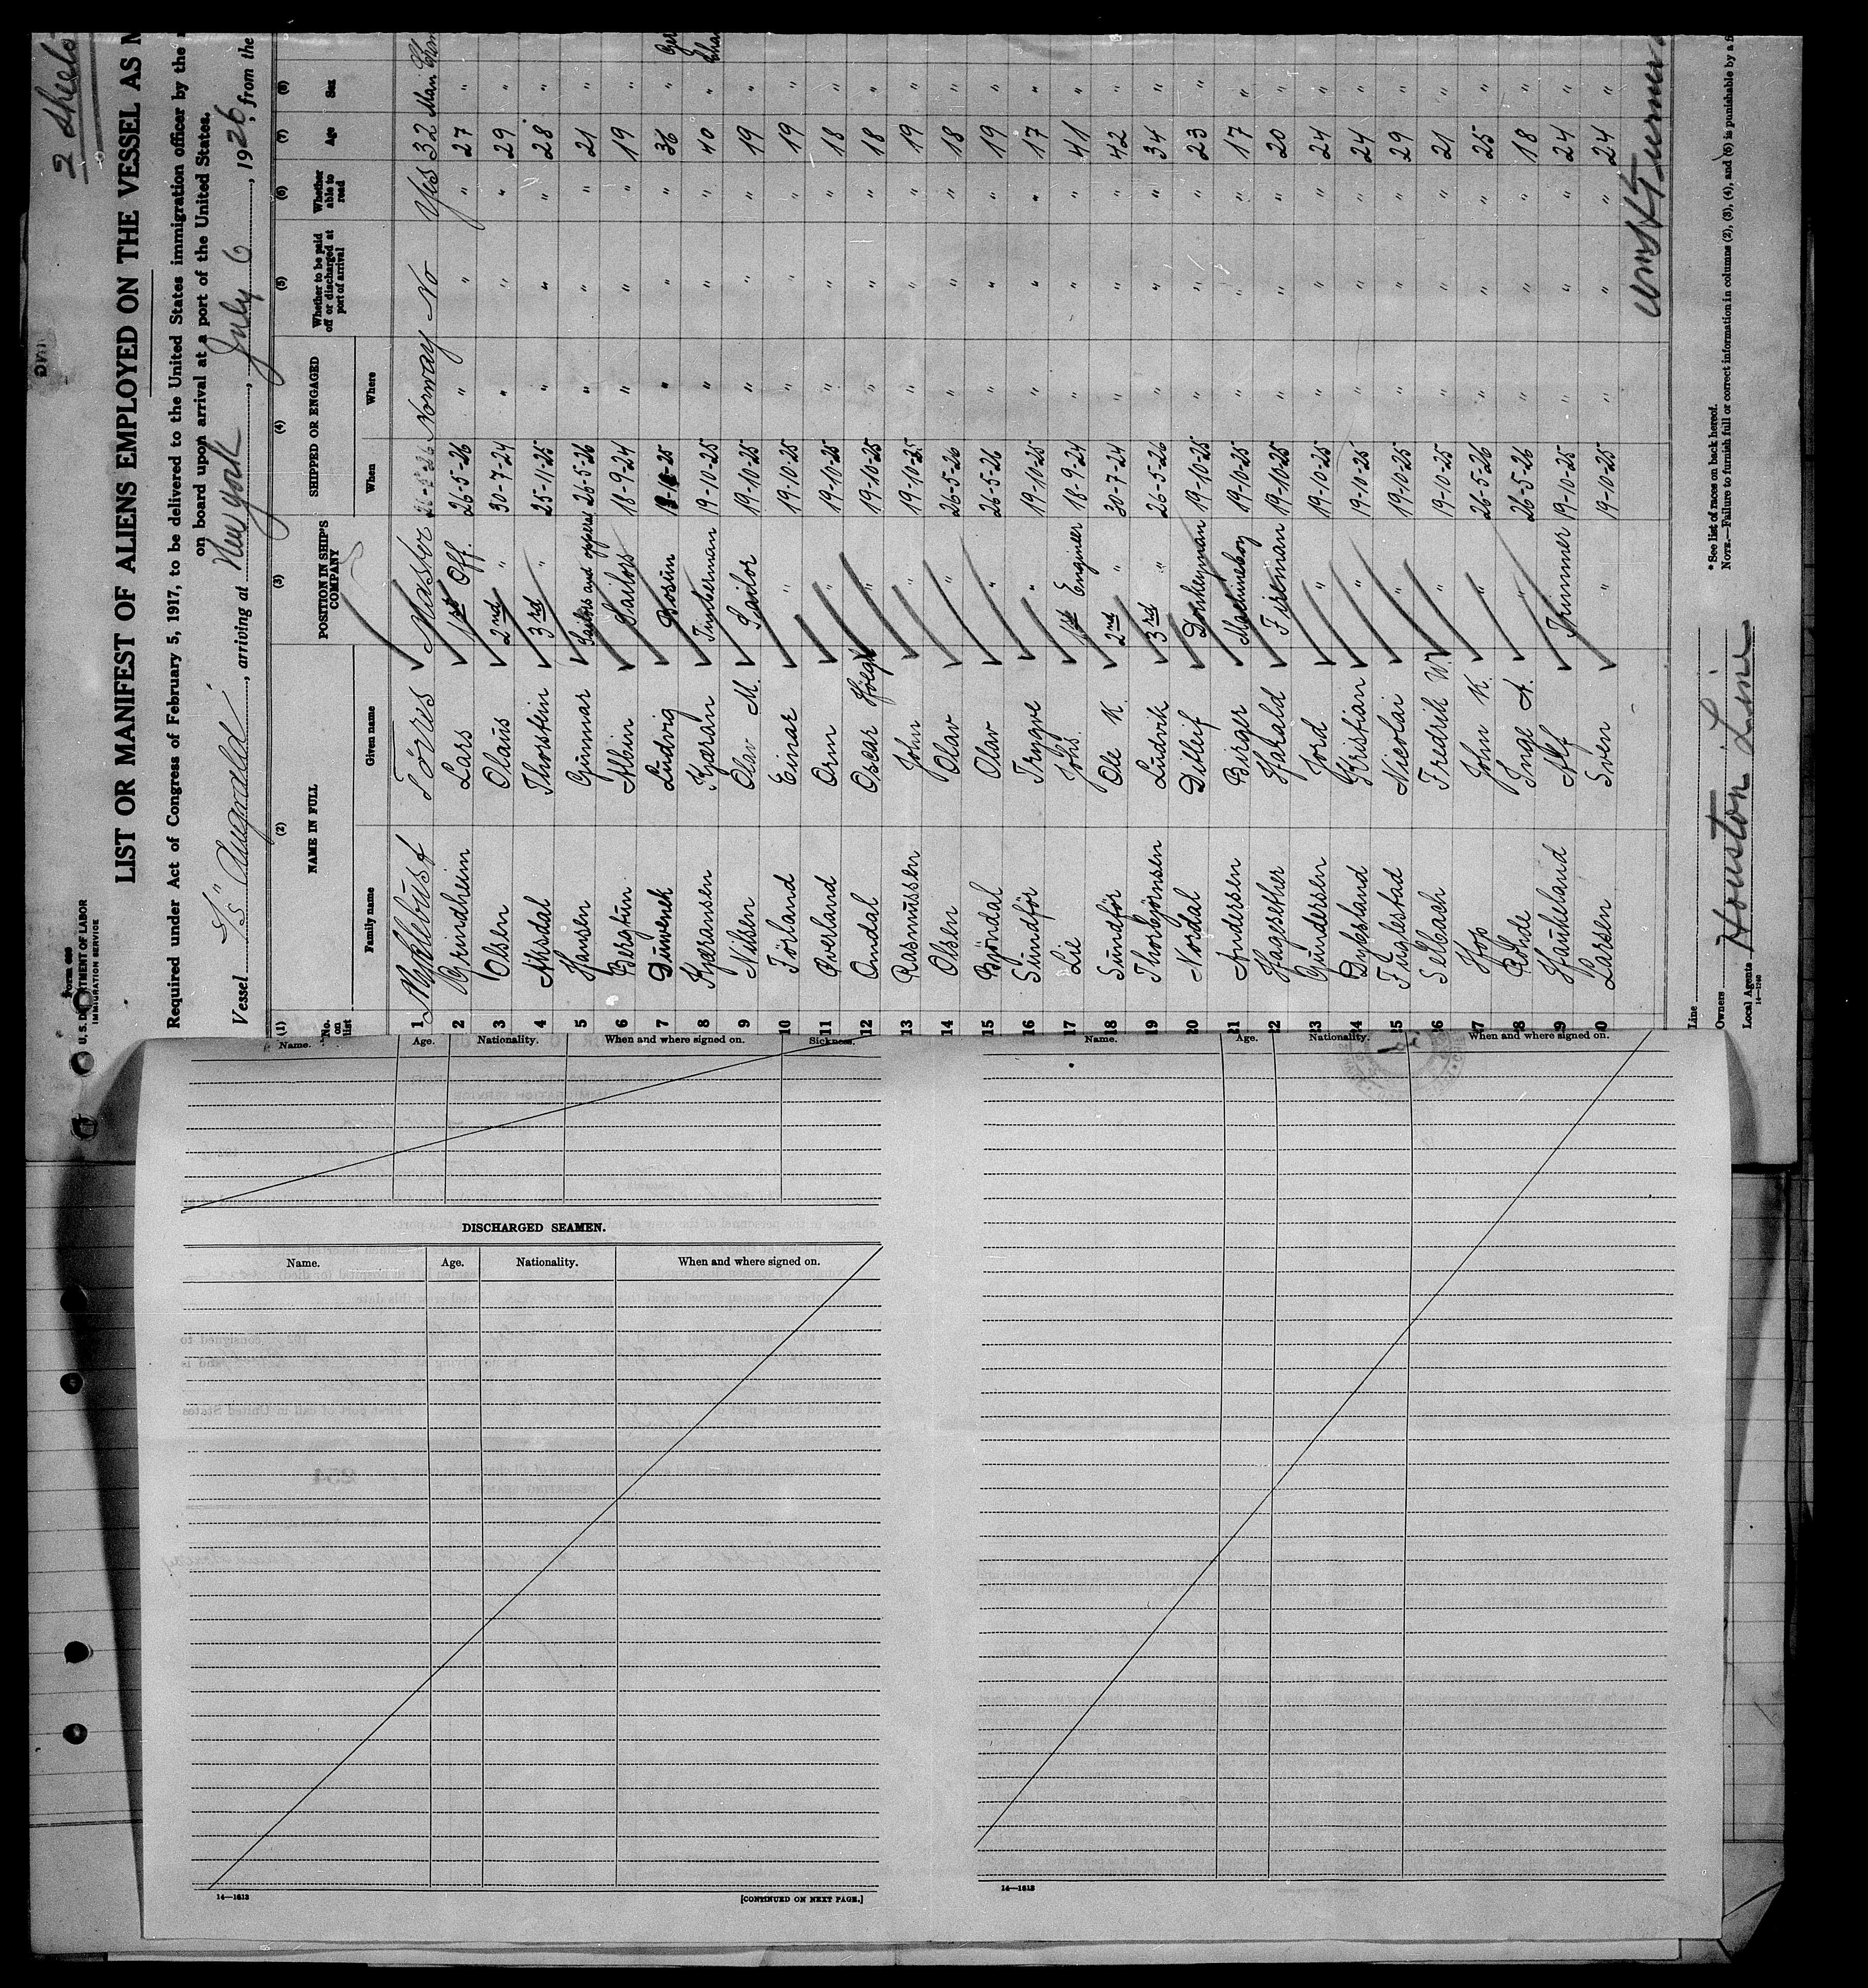 2 Sheets
Form 689
U. S. DEPARTMENT OF LABOR
IMMIGRATION SERVICE
LIST OR MANIFEST OF ALIENS EMPLOYED ON THE VESSEL AS
Required under Act of Congress of February 5, 1917, to be delivered to the United States immigration officer by the
on board upon arrival at a port of the United States.
Vessel S/S "Augvald", arriving at New York, July 6, 1926, from the
(1) (2) (3) (4) (5) (6) (7) (8)
No. on list NAME IN FULL POSITION IN SHIP'S COMPANY SHIPPED OR ENGAGED Whether to be paid off or discharged at port of arrival Whether able to read Age Sex
Family name Given name When Where
1 Myklebust Tönes Master 26-5-26 Norway No Yes 32 Man
2 Grindheim Lars 1st Off. 26-5-26 " " " 27 "
3 Olsen Olaus 2nd " 30-7-24 " " " 29 "
4 Aksdal Thorstein 3rd " 25-11-25 " " " 28 "
5 Hansen Gunnar 26-5-26 " " " 21 "
6 Bergtun Albin Sailors 18-9-24 " " " 19 "
7 Duwenek Ludvig Bosun " " " 36 "
8 Kjæransen Kjæran Timberman 19-10-25 " " " 40 "
9 Nilsen Olav M. Sailor 19-10-25 " " " 19 "
10 Törland Einar " 19-10-25 " " " 19 "
11 Överland Orm " 19-10-25 " " " 18 "
12 Omdal Oscar Helge " 19-10-25 " " " 18 "
13 Rasmussen John " 19-10-25 " " " 19 "
14 Olsen Olav " 26-5-26 " " " 18 "
15 Bjöndal Olav " 26-5-26 " " " 19 "
16 Sundför Trygve " 19-10-25 " " " 17 "
17 Lie Johs. 1st Engineer 18-9-24 " " " 41 "
18 Sundför Ole K. 2nd " 30-7-24 " " " 42 "
19 Thorbjörnsen Ludvik 3rd " 26-5-26 " " " 34 "
20 Nordal Ditleif Donkeyman 19-10-25 " " " 23 "
21 Andersen Birger Machineboy 19-10-25 " " " 17 "
22 Hagsether Harald Fireman 19-10-25 " " " 20 "
23 Gundersen Tord " 19-10-25 " " " 24 "
24 Dybsland Kristian " 19-10-25 " " " 24 "
25 Fuglestad Nicolai " 19-10-25 " " " 29 "
26 Selbach Fredrik W. " 19-10-25 " " " 21 "
27 John K. " 26-5-26 " " " 25 "
28 Inge A. " 26-5-26 " " " 18 "
29 Haukeland Alf Trimmer 19-10-25 " " " 24 "
30 Larsen Sven " 19-10-25 " " " 24 "
Line
Owners
Local Agents Houston Line
14—1240
* See list of races on back hereof.
NOTE.—Failure to furnish full or correct information in columns (2), (3), (4), and (5) is punishable by a
Name. Age. Nationality. When and where signed on. Sickness.
DISCHARGED SEAMEN.
Name. Age. Nationality. When and where signed on.
14—1813
[CONTINUED ON NEXT PAGE.]
Name. Age. Nationality. When and where signed on.
14—1813